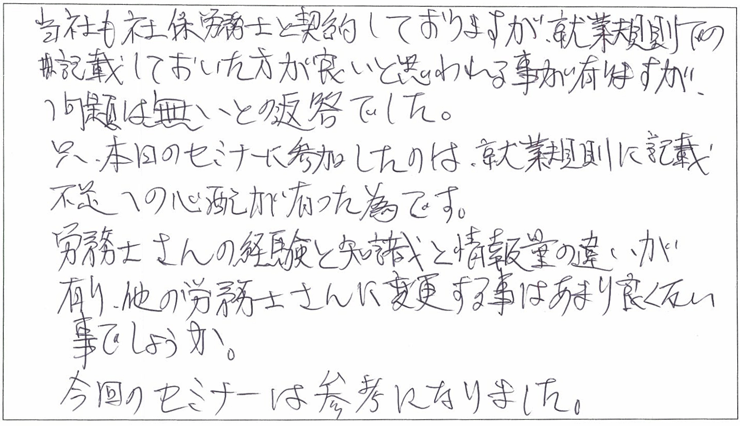 当社も社保労務士と契約しておりますが、就業規則での
記載しておいた方が良いと思われる事が有りますが、
問題は無いとの返答でした。
只、本日のセミナーに参加したのは、就業規則に記載
不足への心配が有った為です。
労務士さんの経験と知識と情報量の違いが
有り、他の労務士さんに変更する事はあまり良くない
事でしょうか。
今回のセミナーは参考になりました。